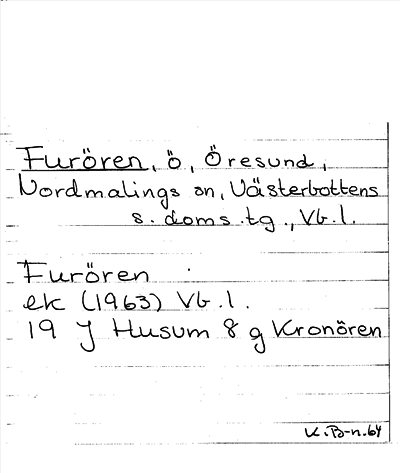 Furören, ö, Öresund,
Nordmalings sn, Västerbottens
s. doms. tg., Vb. l.
Furören
ek (1963) Vb. l.
19 J Husum 8 g Kronören
K. B-n. 64